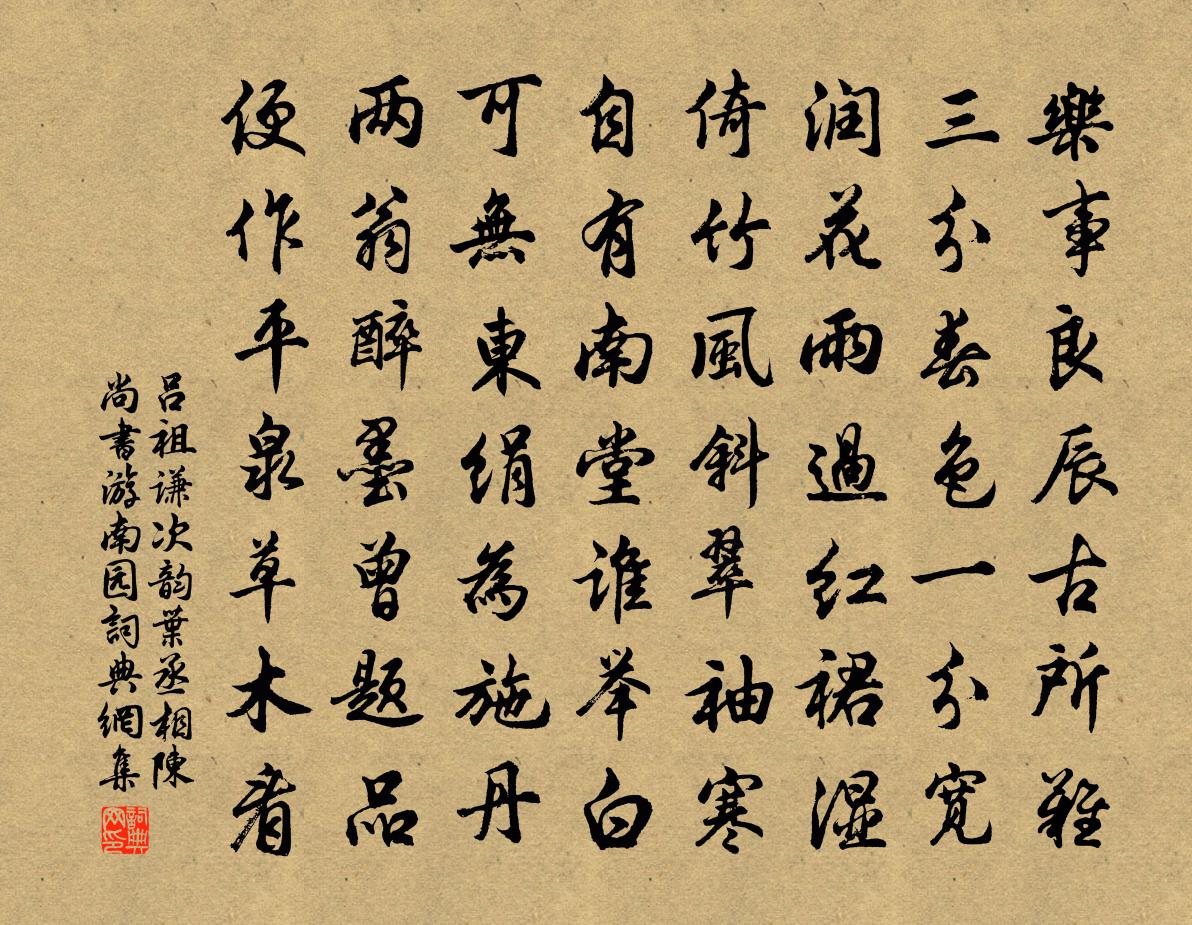 樂事良辰古所難
三分春色一分寬
润花雨過紅裙濕
倚竹風斜翠袖寒
自有南堂谁举白
可無東绢為施丹
两翁醉墨曾题品
便作平泉草木看
吕祖謙次韵葉丞相陳
尚書游南园詞典網集
詞典
网印